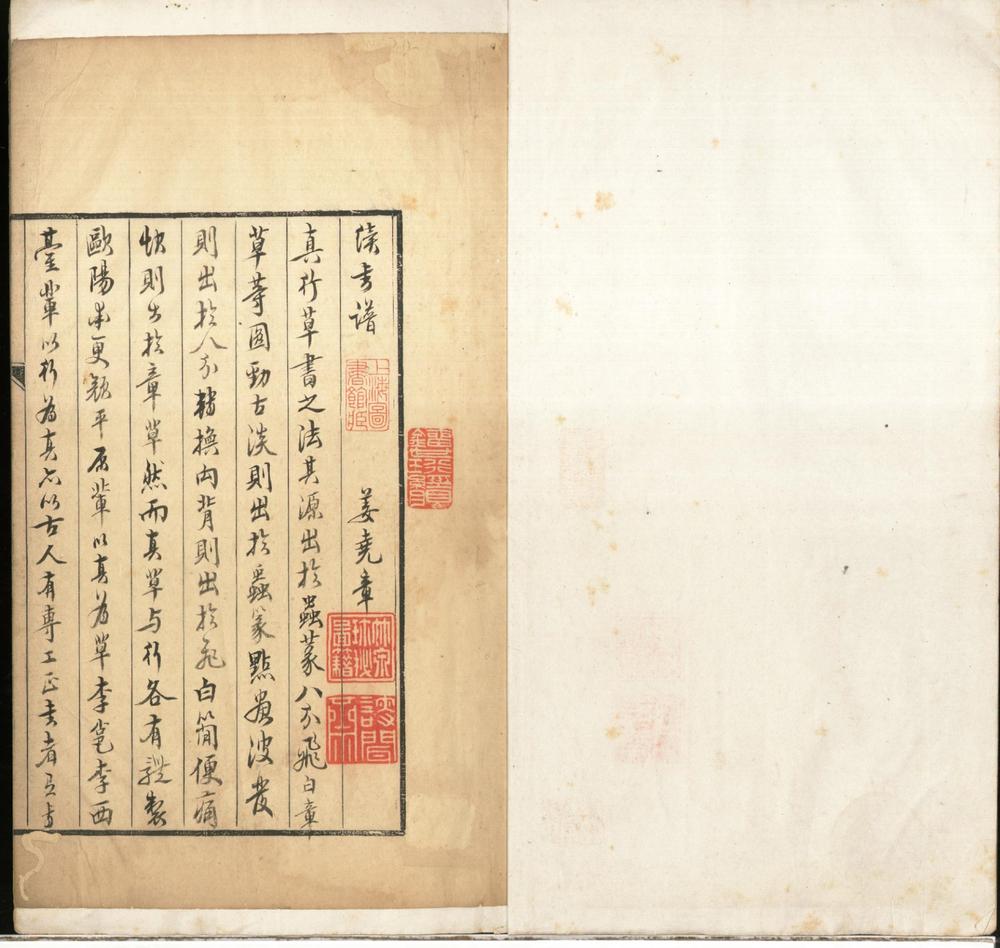 续书谱
姜堯章
真行草書之法其源出於蟲篆八分飛白章
草等圆勁古淡則出於蟲篆點畫波发
則出於八分轉換向背則出於飛白简便痛
快則出於章草然而真草与行各有體製
歐陽率更颜平原輩以真为草李邕李西
臺輩以行為真亦以古人有專工正书者有专
上海圖書館藏